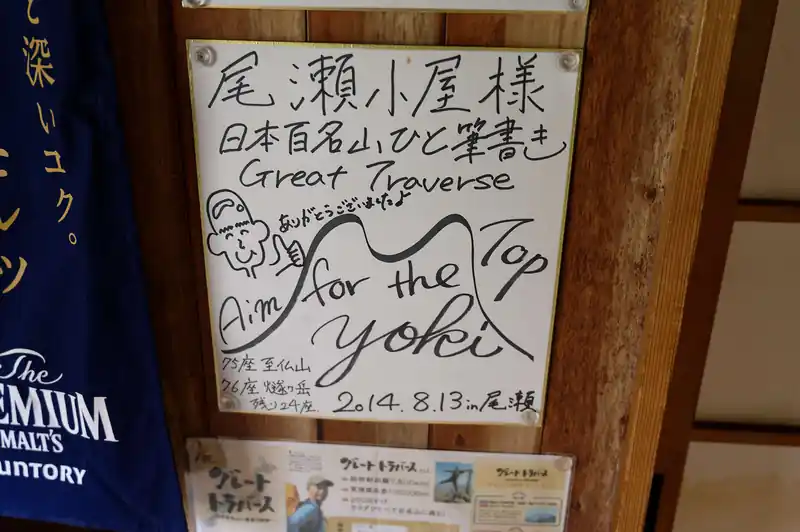 尾瀬小屋様
日本百名山ひと筆書き
Great Traverse
ありがとうございましたよ
Aim for the Top
yoki
75座 至仏山
76座 燧ヶ岳
残り24座.
2014.8.13 in 尾瀬
深いコク。
The
PREMIUM
MALT'S
SUNTORY
グレート
トラバース
グレート トラバース
グレート トラバース